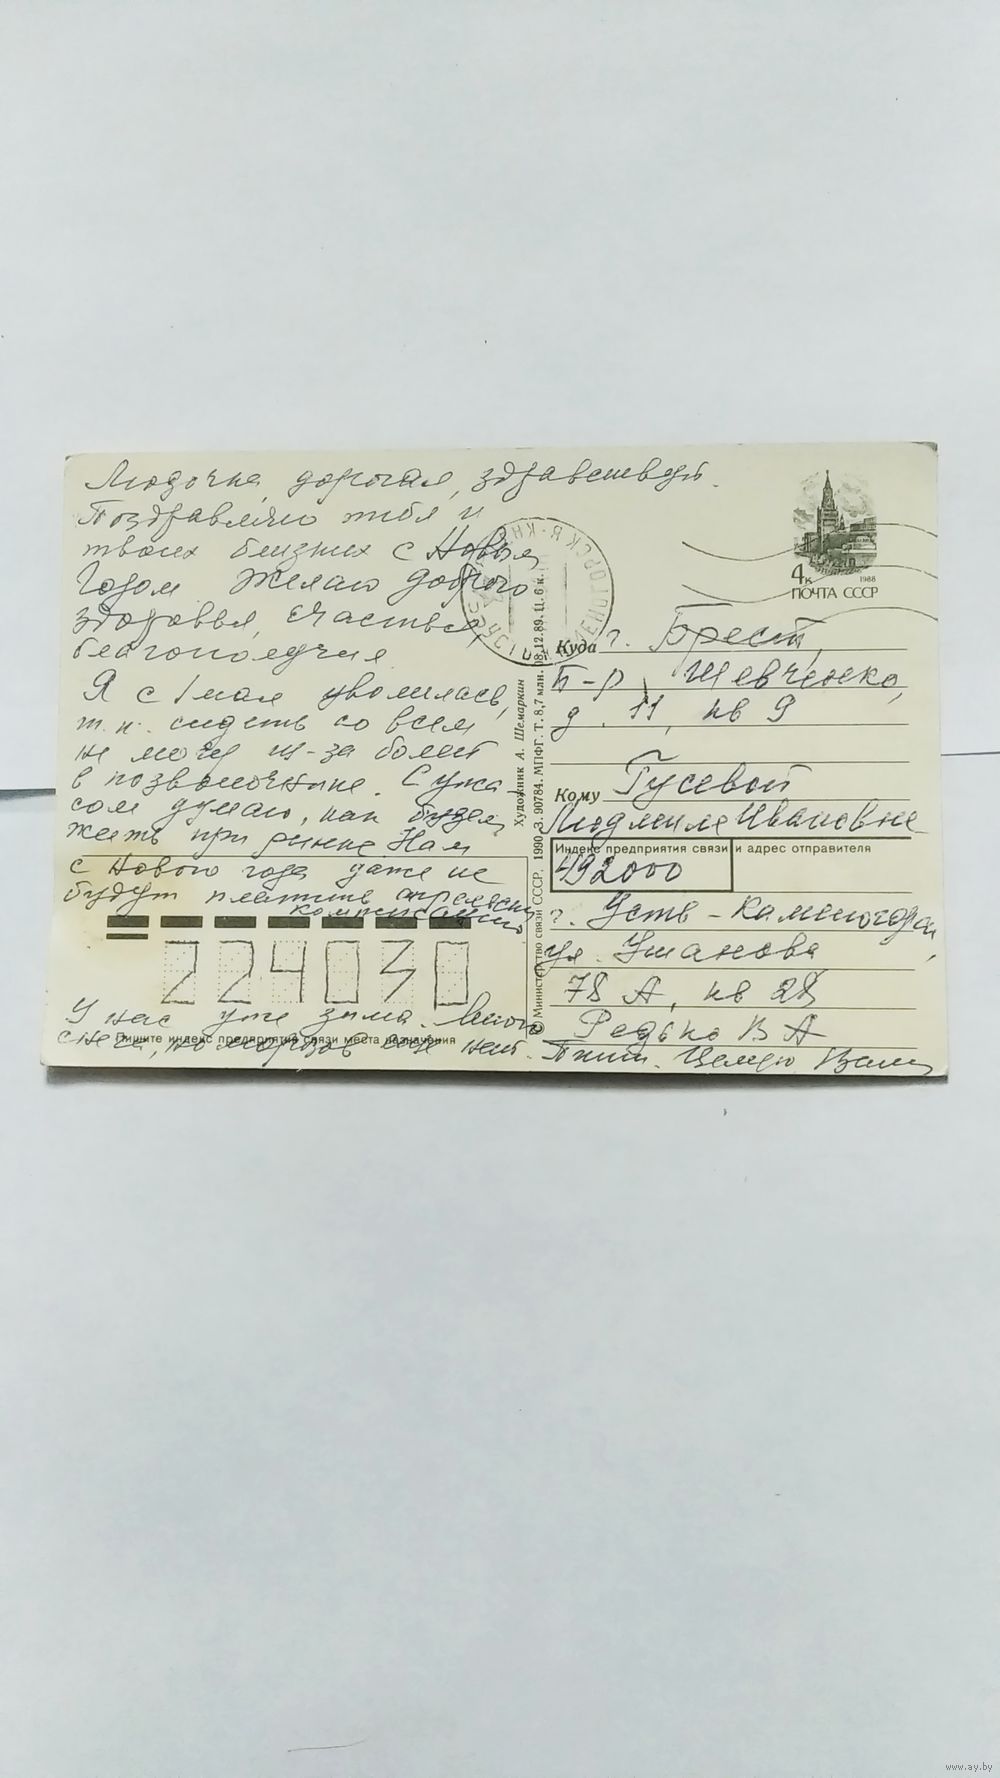 Людочка, дорогая, здравствуй.
Поздравляю тебя и
твоих близких с Новым
Годом. Желаю доброго
здоровья, счастья,
благополучия.
Я с 1 мая уволилась,
т.к. сидеть со всем
не могу из-за болей
в позвоночнике. С ужа
сом думаю, как будем
жить при рынке. Нам
с Нового года даже не
будут платить апрельскую
компенсацию
224030
У нас уже зима. Много
снега, но морозов еще нет.
Пишите индекс предприятия связи места назначения
Художник А. Шемаркин
© Министерство связи СССР. 1990. З. 90784. МПФГ. Т. 8,7 млн. 08.12.89. Ц. 6 к.
4к 1988
ПОЧТА СССР
Куда г. Брест,
Б-р Шевченко,
д. 11, кв 9
Кому Гусевой
Людмиле Ивановне
Индекс предприятия связи и адрес отправителя
492000
г. Усть-Каменогорск,
ул. Ушанова
78 А, кв 28
Редько В А
Пиши. Целую Валя
www.ay.by